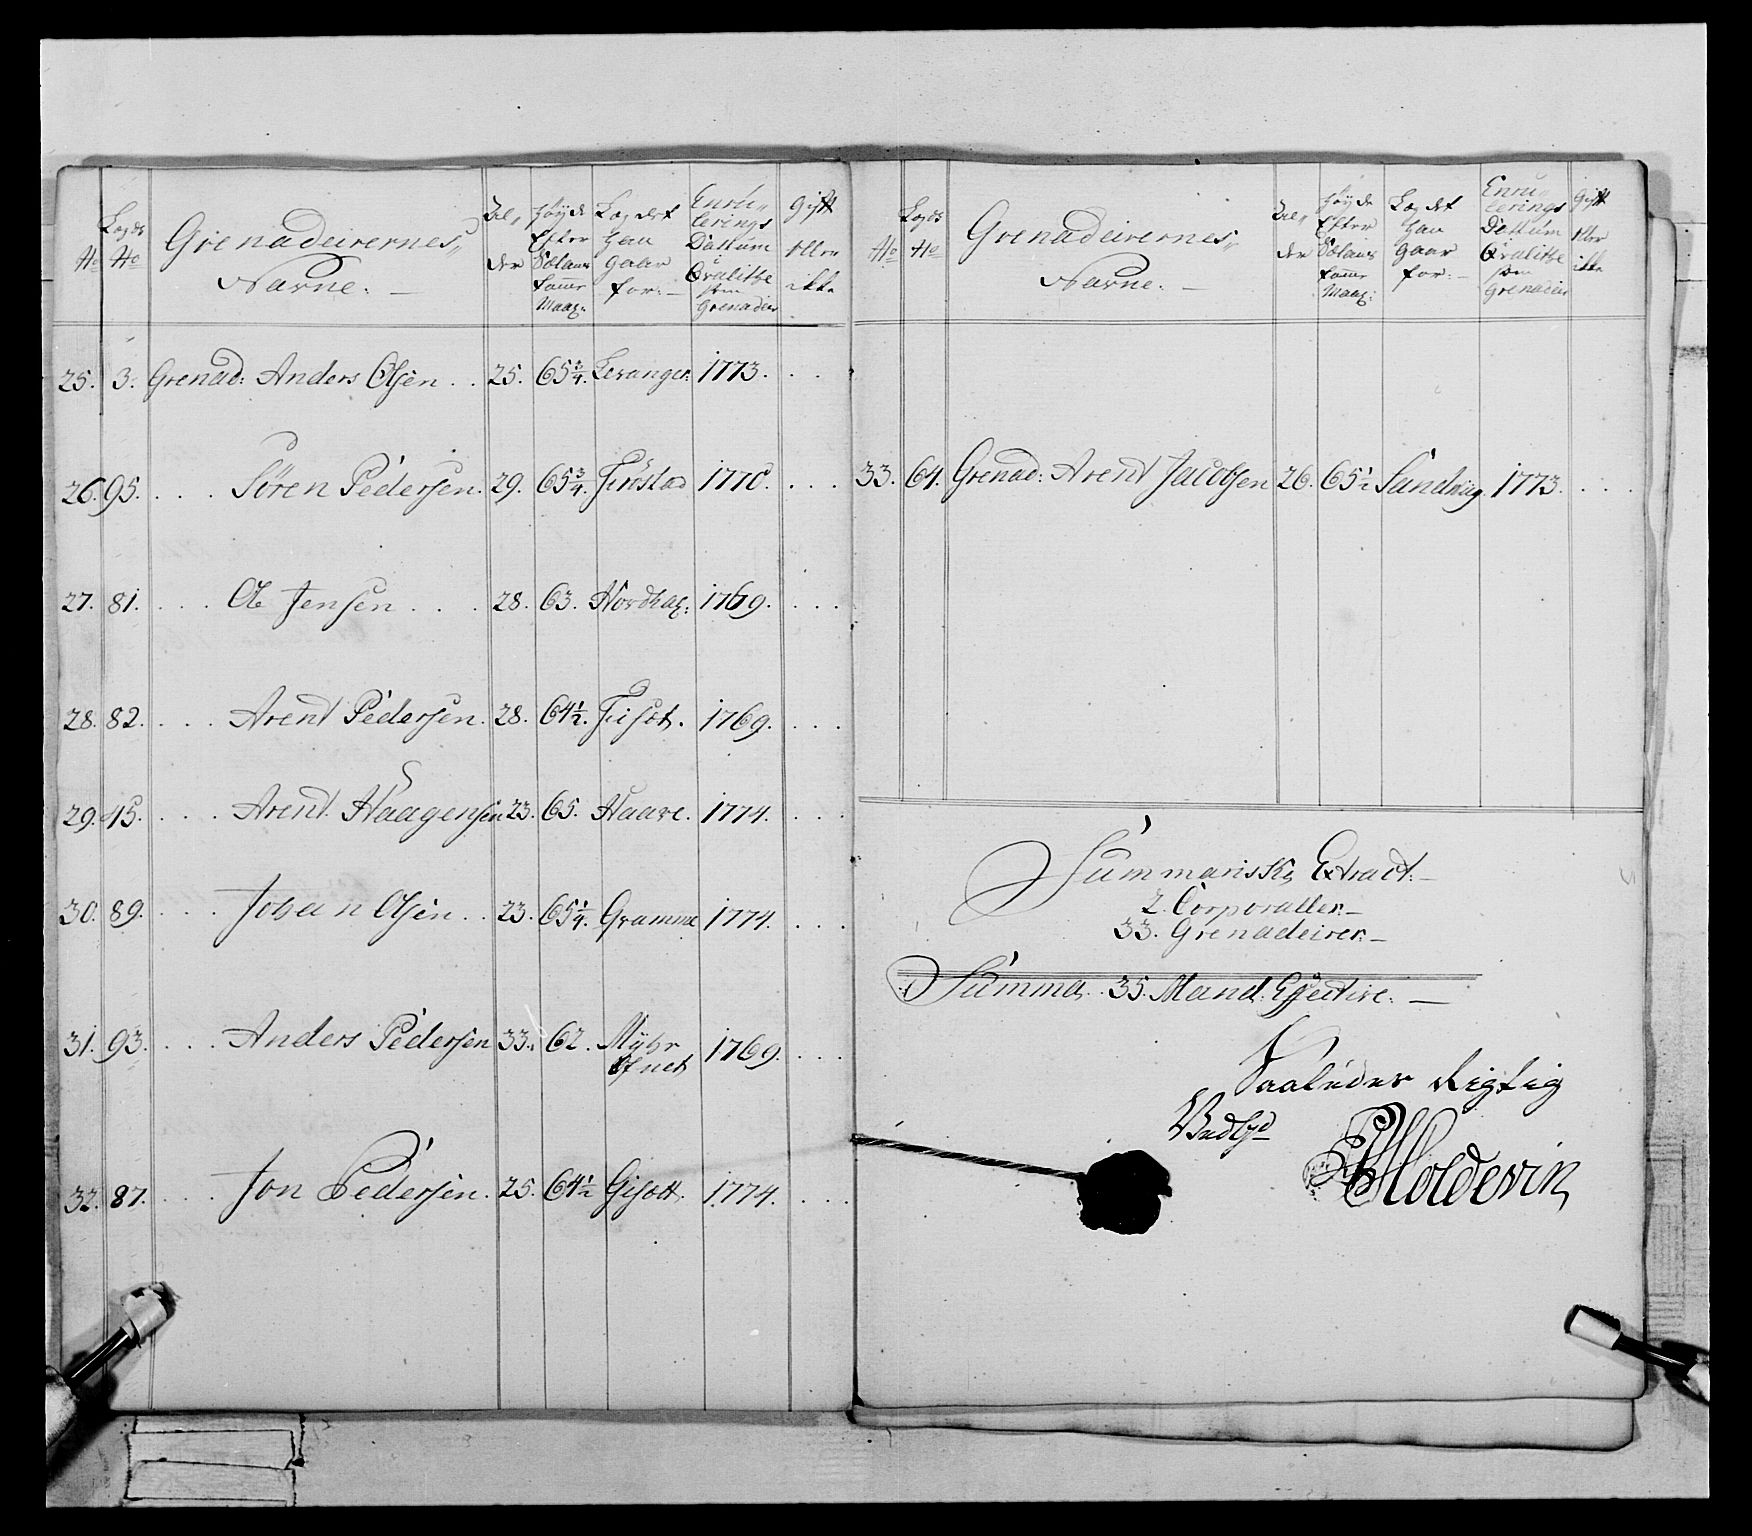 No
Lægds No
Grenadeirernes Navne.
Al,, der
Høyde Efter Sælans Tomme Maal:
Lægdet han gaar for:
Enrulerings Dattum Qvalitte som Grenadeir
Gift eller ikke
25. 3. Grenad: Anders Olsen . . 25. 65 3/4. Levanger. 1773. . .
26. 95. . . . Sören Pedersen. 29. 65 3/4. 1770. . . .
27. 81. . . . Ole Jensen . . . 28. 63. 1769. . . .
28. 82. . . . Arent Pedersen. 28. 64 1/2. 1769. . . .
29. 45. . . . Arent Haagensen 23. 65. Haave. 1774. . . .
30. 89. . . . Johan Olsen . . 23. 65 1/4. Gramme 1774. . . .
31. 93. . . . Anders Pedersen 33. 62. Myhr 1769. . . .
32. 87. . . . Jon Pedersen. 25. 64 1/2 1774. . . .
No
Lægds No
Grenadeirernes Navne.
Al,, der
Høyde Efter Sælans Tomme Maal:
Lægdet han gaar for:
Enrulerings Dattum Qvalitte som Grenadeir
Gift eller ikke
33. 64. Grenad: Arent Jacobsen 26. 65 1/2 Sandwiig. 1773. . . .
Summarisk Extract.
2. Corporaller.
33. Grenadeirer.
Summa. 35. Mand. Effective.
Saaleder Rigtig
Holderin